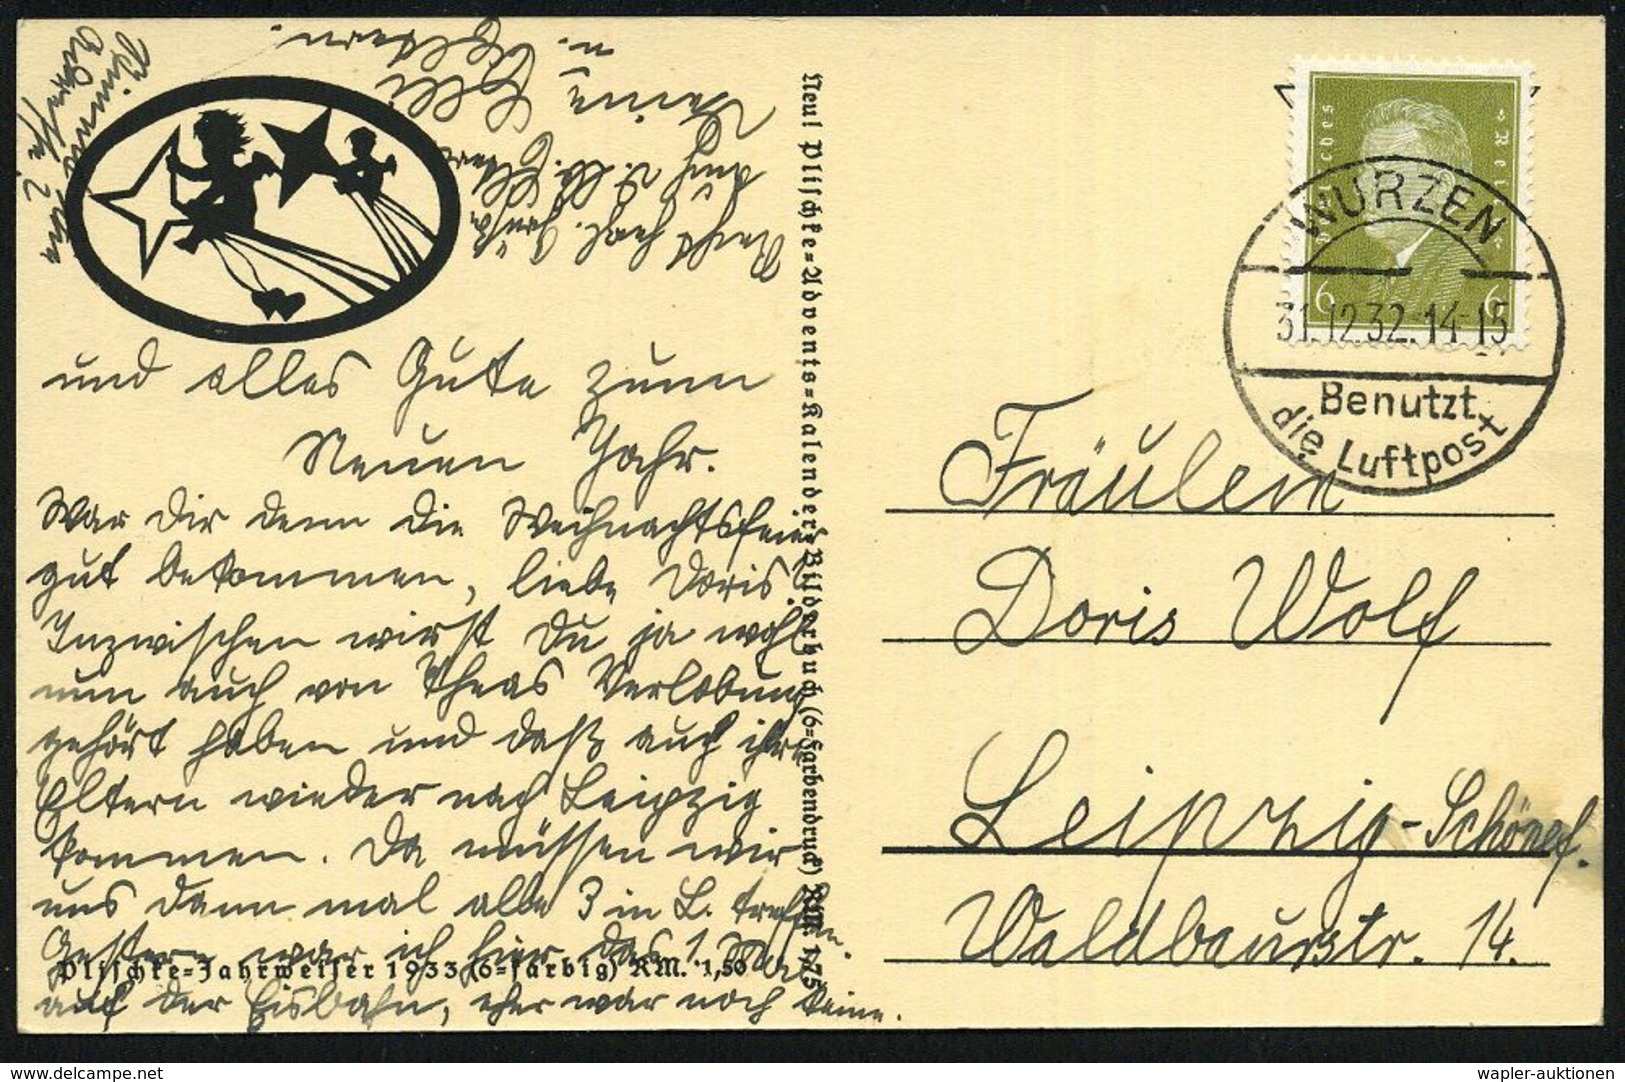 und alles Gute zum
Neuen Jahr.
War dir denn die Weihnachtsfeier
gut bekommen, liebe Doris?
Inzwischen wirst Du ja wohl
nun auch von Theas Verlobung
gehört haben und daß auch ihre
Eltern wieder nach Leipzig
kommen. Da müssen wir
uns dann mal alle 3 in L. treffen.
Gestern war ich hier das 1. Mal
auf der Eisbahn, aber war noch keine.
Recht herzl. Grüße
auch v. m. Eltern
Deine Elli
u. Eltern.
Plischke=Jahrweiser 1933 (6=farbig) RM. 1,50
Neu! Plischke=Advents=Kalender=Bilderbuch (6=Farbendruck) RM. 1.75
Deutsches Reich
6 6
WURZEN
31.12.32.14-15
Benutzt
die Luftpost
Fräulein
Doris Wolf
Leipzig-Schönef.
Waldbaurstr. 14.
Delcampe.net
wapler-auktionen